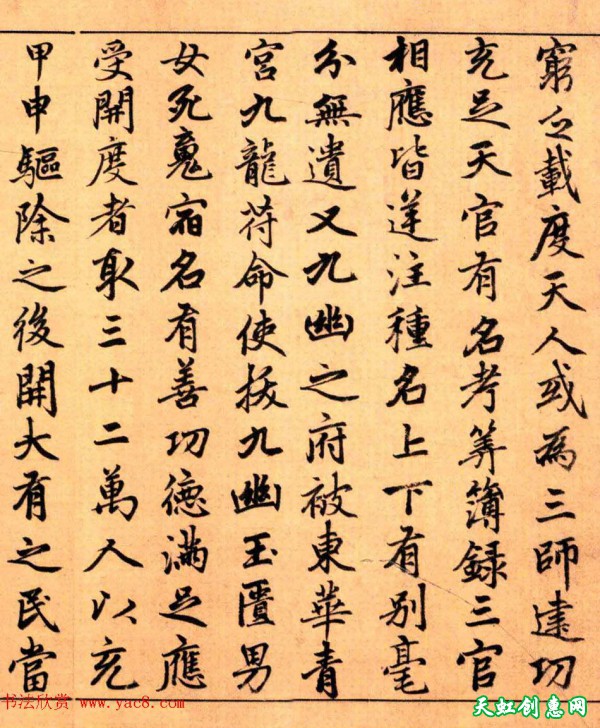 窮之載度天人或為三師建功
充足天官有名考筭簿錄三官
相應皆逆注種名上下有別毫
分無遺又九幽之府被東華青
宮九龍苻命使拔九幽玉匱男
女死魂宿名有善功德滿足應
受開度者取三十二萬人以充
甲申驅除之後開大有之民當
书法欣赏 www.yac8.com
天虹创惠网